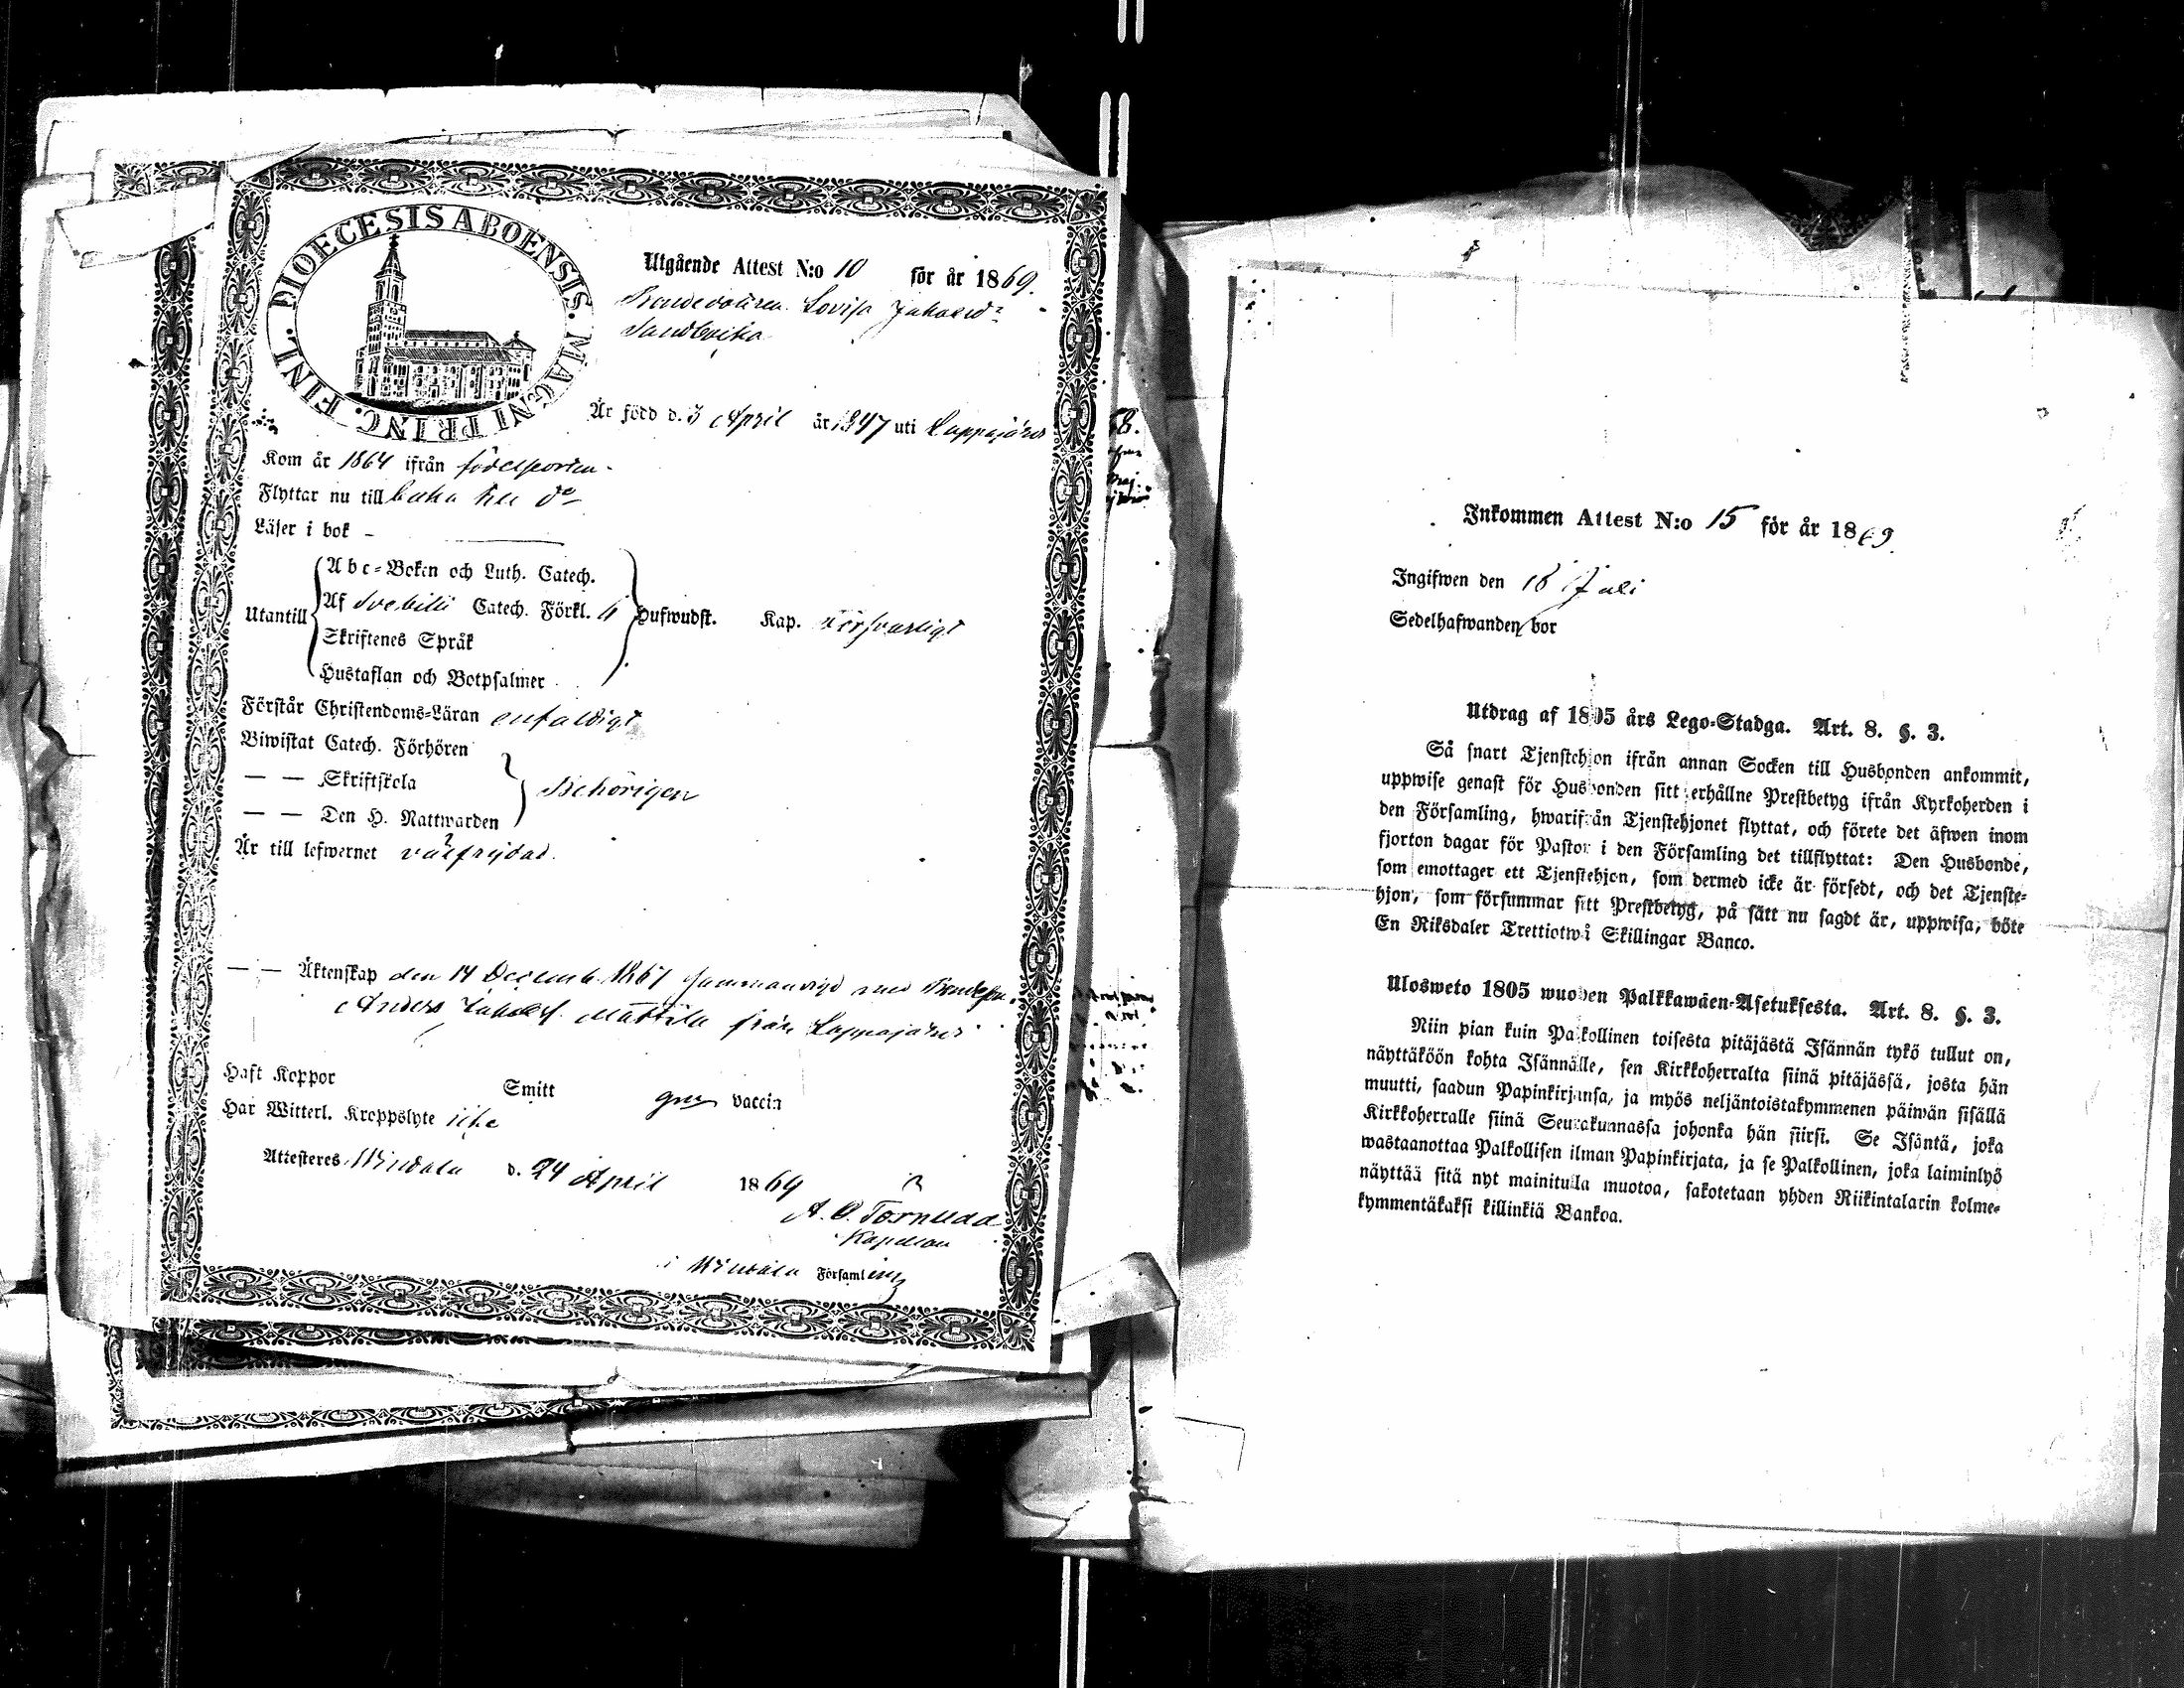 DIOECESIS ABOENSIS. MAGNI PRINC. FINL.
Utgående Attest N:o 10 för år 1869.
Bondedottren Lovisa Jakobsdr
Sandbacka
Är född d. 3 April år 1847 uti Lappajärvi
Kom år 1864 ifrån födelseorten.
Flyttar nu till baka till do
Läser i bok -
Utantill
Abc-Boken och Luth. Catech.
Af Svebilii Catech. Förkl. 4 Hufwudst. Kap. försvarligt
Skriftenes Språk
Hustaflan och Botpsalmer
Förstår Christendoms-Läran enfaldigt
Biwistat Catech. Förhören
— — Skriftskola
— — Den H. Nattwarden
Behörigen
Är till lefwernet välfrejdad.
— — Äktenskap den 14 Decemb. 1867 sammanvigd med Bondeson.
Anders Jakobss. Mattila från Lappajärvi
Haft Koppor Smitt gm vaccin
Har Witterl. Kroppslyte icke
Attesteres. Windala d. 24 April 1869
A. O. Törnudd
Kapellan
i Windala Församling
Inkommen Attest N:o 15 för år 1869.
Ingifwen den 18 Juli
Sedelhafwanden bor
Utdrag af 1805 års Lego-Stadga. Art. 8. §. 3.
Så snart Tjenstehjon ifrån annan Socken till Husbonden ankommit,
uppwise genast för Husbonden sitt erhållne Prestbetyg ifrån Kyrkoherden i
den Församling, hwarifrån Tjenstehjonet flyttat, och förete det äfwen inom
fjorton dagar för Pastor i den Församling det tillflyttat: Den Husbonde,
som emottager ett Tjenstehjon, som dermed icke är försedt, och det Tjenste-
hjon, som försummar sitt Prestbetyg, på sätt nu sagdt är, uppwisa, böte
En Riksdaler Trettiotwå Skillingar Banco.
Ulosweto 1805 wuoden Palkkawäen-Asetuksesta. Art. 8. §. 3.
Niin pian kuin Palkollinen toisesta pitäjästä Isännän tykö tullut on,
näyttäköön kohta Isännälle, sen Kirkkoherralta siinä pitäjässä, josta hän
muutti, saadun Papinkirjansa, ja myös neljäntoistakymmenen päiwän sisällä
Kirkkoherralle siinä Seurakunnassa johonka hän siirsi. Se Isäntä, joka
wastaanottaa Palkollisen ilman Papinkirjata, ja se Palkollinen, joka laiminlyö
näyttää sitä nyt mainitulla muotoa, sakotetaan yhden Riikintalarin kolme-
kymmentäkaksi killinkiä Bankoa.